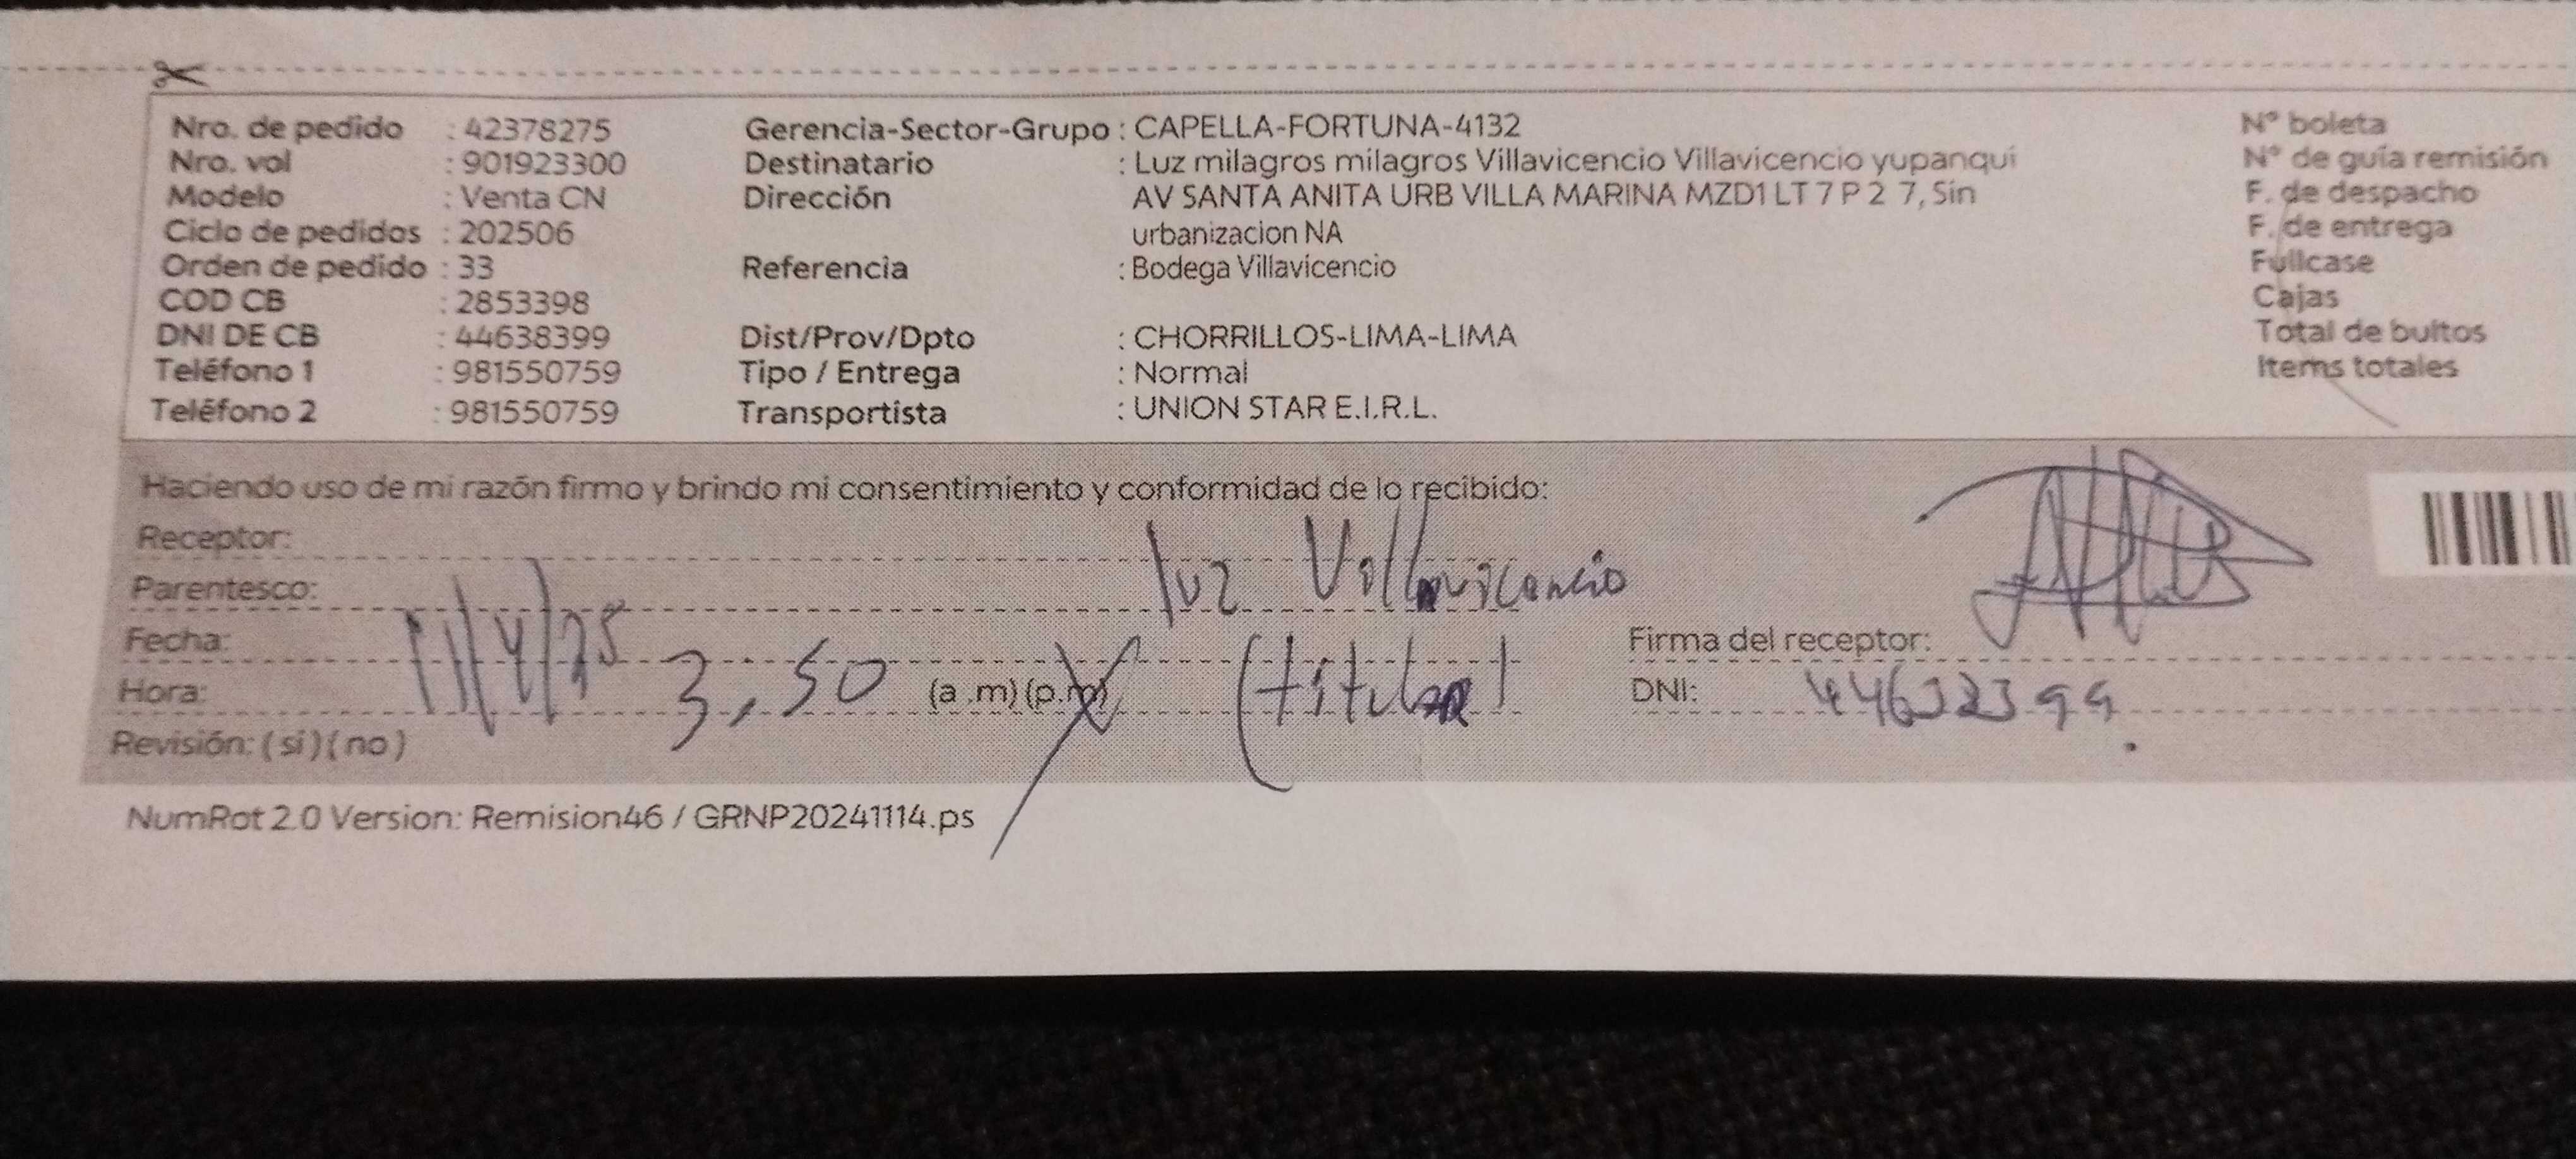 Nro. de pedido : 42378275 Gerencia-Sector-Grupo : CAPELLA-FORTUNA-4132 N° boleta
Nro. vol : 901923300 Destinatario : Luz milagros milagros Villavicencio Villavicencio yupanqui N° de guía remisión
Modelo : Venta CN Dirección AV SANTA ANITA URB VILLA MARINA MZD1 LT 7 P 2 7, Sin F. de despacho
Ciclo de pedidos : 202506 urbanizacion NA F. de entrega
Orden de pedido : 33 Referencia : Bodega Villavicencio Fullcase
COD CB : 2853398 Cajas
DNI DE CB : 44638399 Dist/Prov/Dpto : CHORRILLOS-LIMA-LIMA Total de bultos
Teléfono 1 : 981550759 Tipo / Entrega : Normal Items totales
Teléfono 2 : 981550759 Transportista : UNION STAR E.I.R.L.
Haciendo uso de mi razón firmo y brindo mi consentimiento y conformidad de lo recibido:
Receptor:
Parentesco: luz Villavicencio
Fecha: 11/4/25 Firma del receptor:
Hora: 3,50 (a .m) (p.m) (titular) DNI:
Revisión: ( si ) ( no )
NumRot 2.0 Version: Remision46 / GRNP20241114.ps